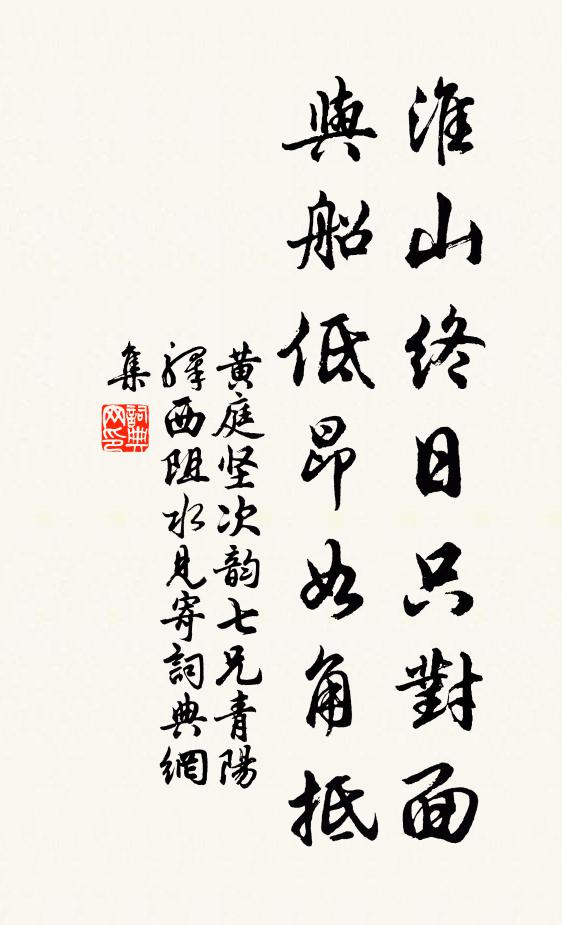 淮山终日只對面
與船低昂如角抵
黄庭坚次韵七兄青陽
驛西阻水見寄詞典網
集
詞典网印